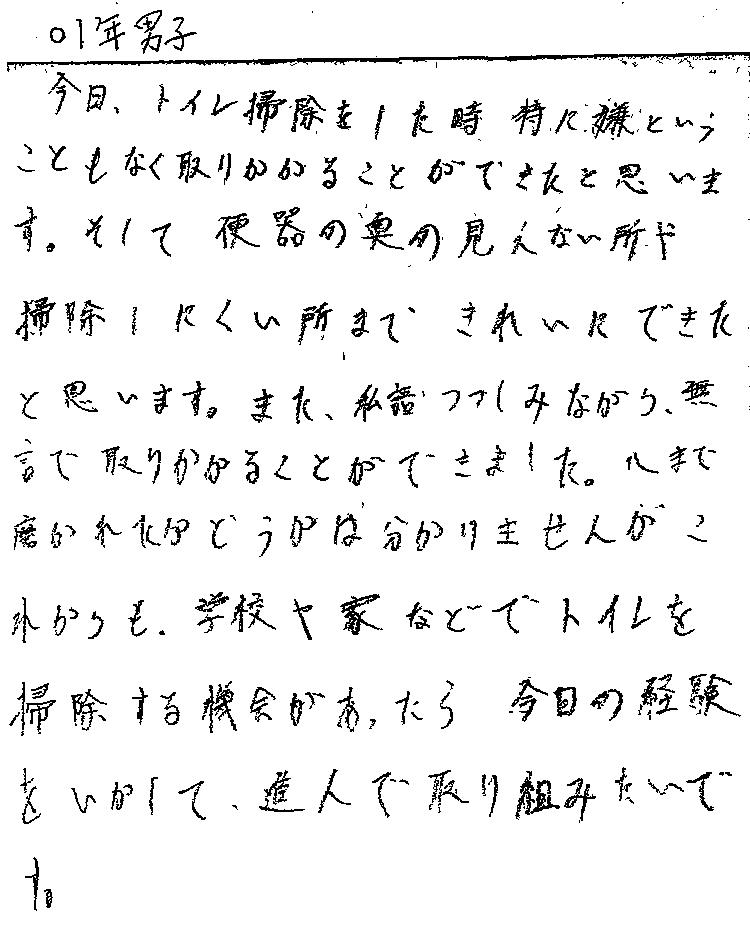 01年男子
今日、トイレ掃除をした時 特に嫌という
こともなく取りかかることができたと思いま
す。そして 便器の奥の見えない所や
掃除しにくい所まで きれいにできた
と思います。また、私語つつしみながら、無
言で取りかかることができました。心まで
磨かれたかどうかは分かりませんがこ
れからも、学校や家などでトイレを
掃除する機会があったら 今日の経験
をいかして、進んで取り組みたいで
す。